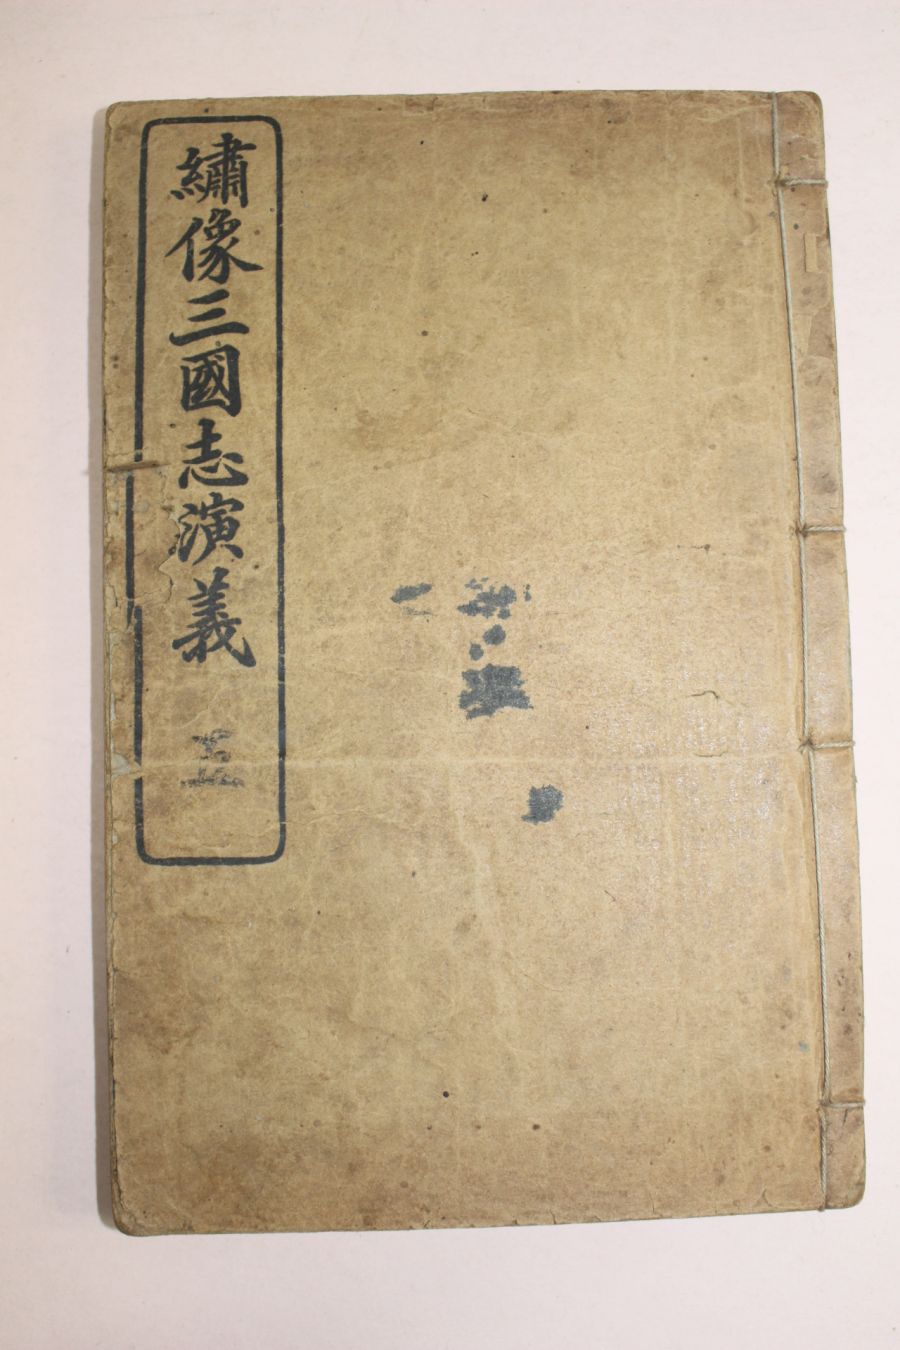 繡像三國志演義 五